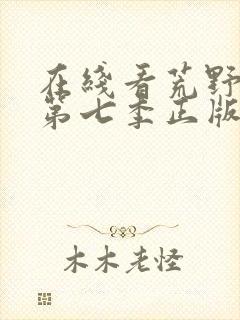 在线看荒野
第七季正版
木木老怪